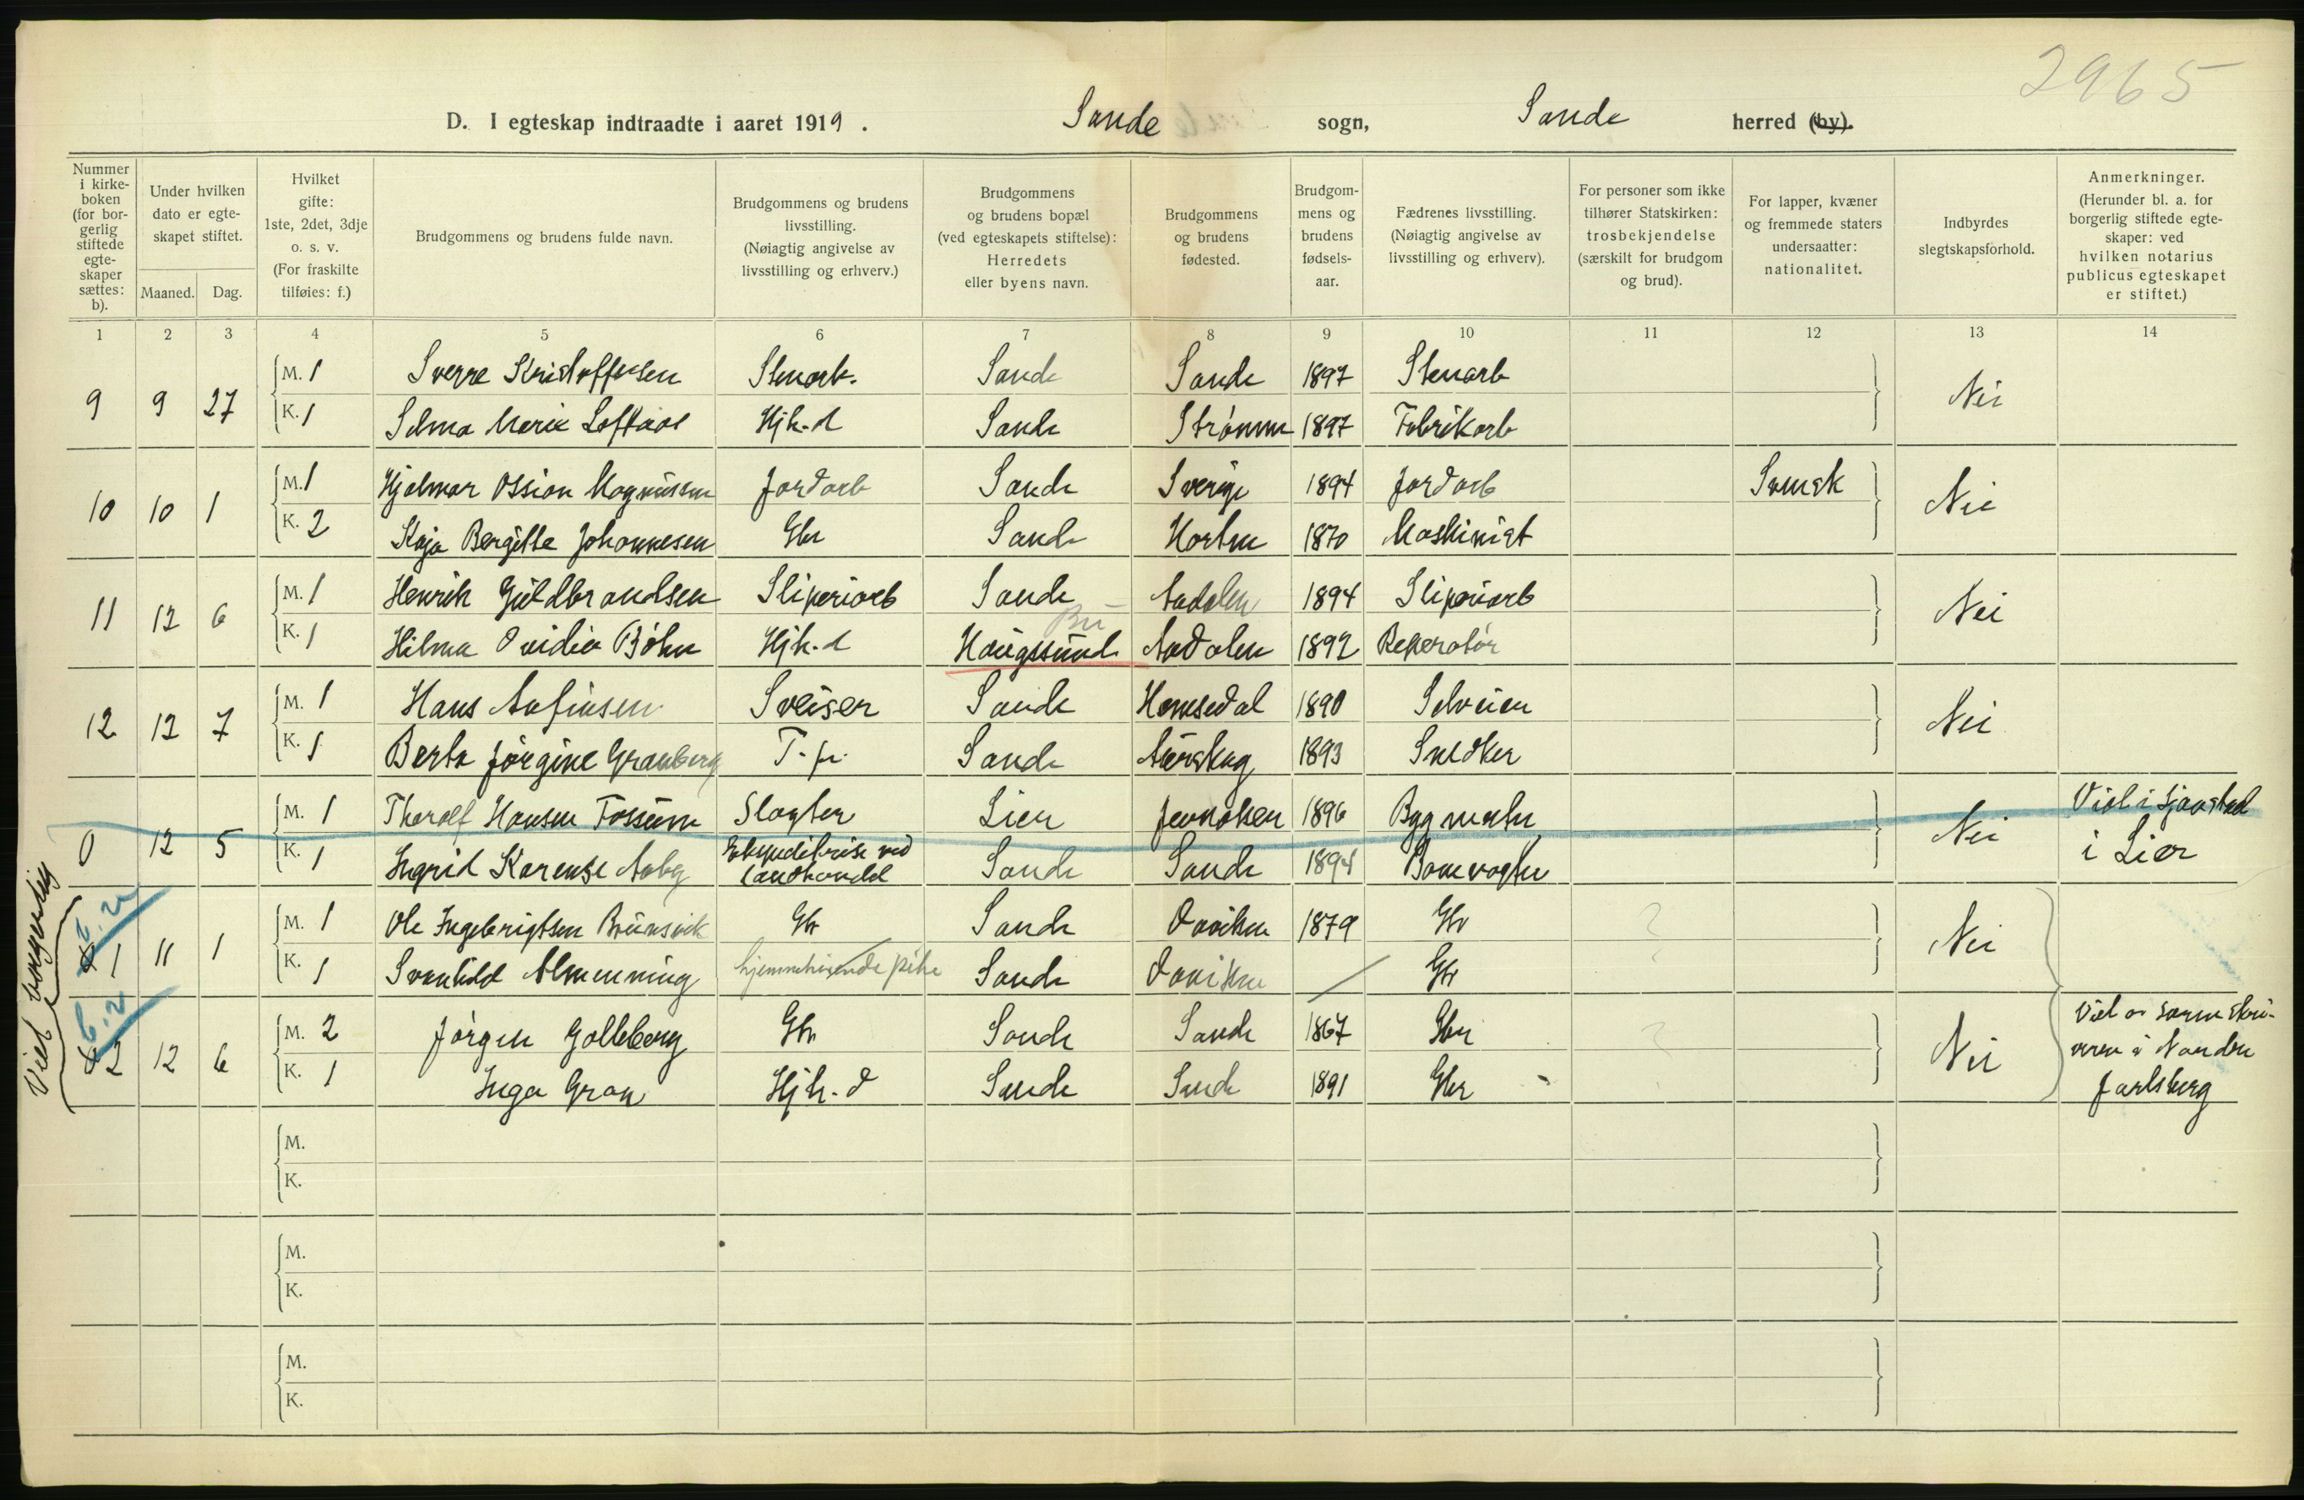 2965
D. I egteskap indtraadte i aaret 1919. Sande sogn, Sande herred (by).
Nummer i kirkeboken (for borgerlig stiftede egteskaper sættes: b).
Under hvilken dato er egteskapet stiftet.
Maaned. Dag.
Hvilket gifte: 1ste, 2det, 3dje o. s. v. (For fraskilte tilføies: f.)
Brudgommens og brudens fulde navn.
Brudgommens og brudens livsstilling. (Nøiagtig angivelse av livsstilling og erhverv.)
Brudgommens og brudens bopæl (ved egteskapets stiftelse): Herredets eller byens navn.
Brudgommens og brudens fødested.
Brudgommens og brudens fødselsaar.
Fædrenes livsstilling. (Nøiagtig angivelse av livsstilling og erhverv).
For personer som ikke tilhører Statskirken: trosbekjendelse (særskilt for brudgom og brud).
For lapper, kvæner og fremmede staters undersaatter: nationalitet.
Indbyrdes slegtskapsforhold.
Anmerkninger. (Herunder bl. a. for borgerlig stiftede egteskaper: ved hvilken notarius publicus egteskapet er stiftet.)
1 2 3 4 5 6 7 8 9 10 11 12 13 14
9 9 27 M. 1 Sverre Kristoffersen Stenarb. Sande Sande 1897 Stenarb Nei
K. 1 Selma Marie Hjk. d Sande Strømm 1897 Fabrikarb
10 10 1 M. 1 Hjalmar Ossian Magnussen Jordarb Sande Sverige 1894 Jordarb Svensk Nei
K. 2 Kaja Bergitte Johannesen Gbr Sande Horten 1870 Maskinist
11 12 6 M. 1 Henrik Guldbrandsen Sliperiarb Sande Aadalen 1894 Sliperiarb Nei
Bu
K. 1 Hilma Ovidia Bøhn Hjk. d Haugssund Aadalen 1892 Reperatør
12 12 7 M. 1 Hans Anfinsen Sveiser Sande Hemsedal 1890 Selveier Nei
K. 1 Berta Jørgine Granberg T. p. Sande Aurskog 1893 Snedker
0 12 5 M. 1 Thorolf Hansen Fossum Slagter Lier Jevnaker 1896 Byggmester Nei Viet i Sjaastad
K. 1 Ingrid Karense Aaby Ekspeditrise ved landhandel Sande Sande 1894 Banevogter i Lier
Viet borgerlig
b. 2
1 11 1 M. 1 Ole Ingebrigtsen Brunsvik Gbr Sande Drøviken 1879 Gbr ? Nei
K. 1 Svanhild Almenning hjemmeværende pike Sande Gbr
b. 2
2 12 6 M. 2 Jørgen Galleberg Gbr Sande Sande 1867 Gbr ? Nei Viet av sorenskri-
K. 1 Inga Gran Hjk. d Sande Sande 1891 Gbr veren i Nordre
Jarlsberg
M.
K.
M.
K.
M.
K.